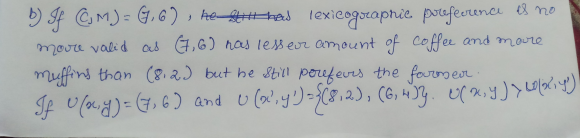 b) If (C,M) = (7,6), he still has lexicographic preference is no
more valid as (7,6) has lesser amount of coffee and more
muffins than (8,2) but he still prefers the former.
If U(x,y) = (7,6) and U(x',y') = {(8,2), (6,4)}. U(x,y) > U(x',y')